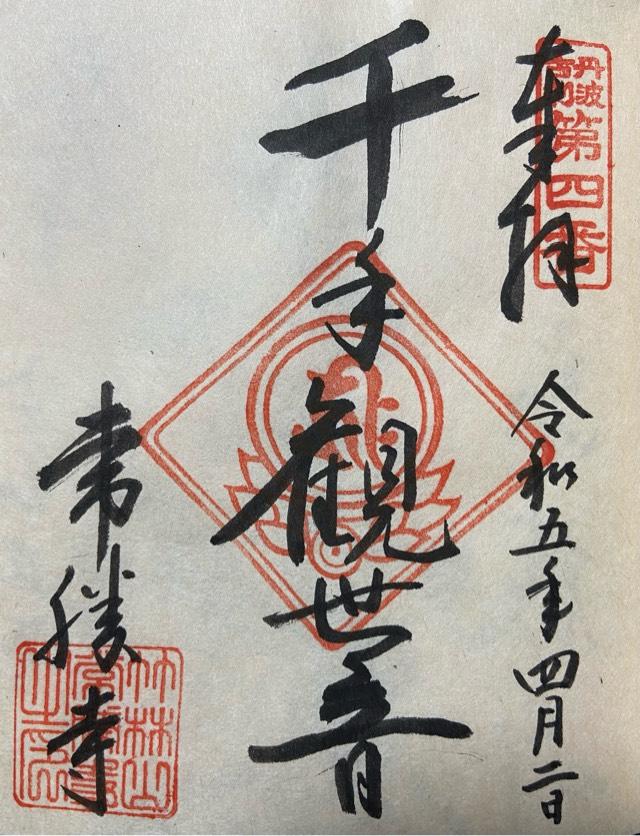 奉拝
丹波
古刹
第四番
令和五年四月二日
千手観世音
常勝寺
竹林山
常勝寺